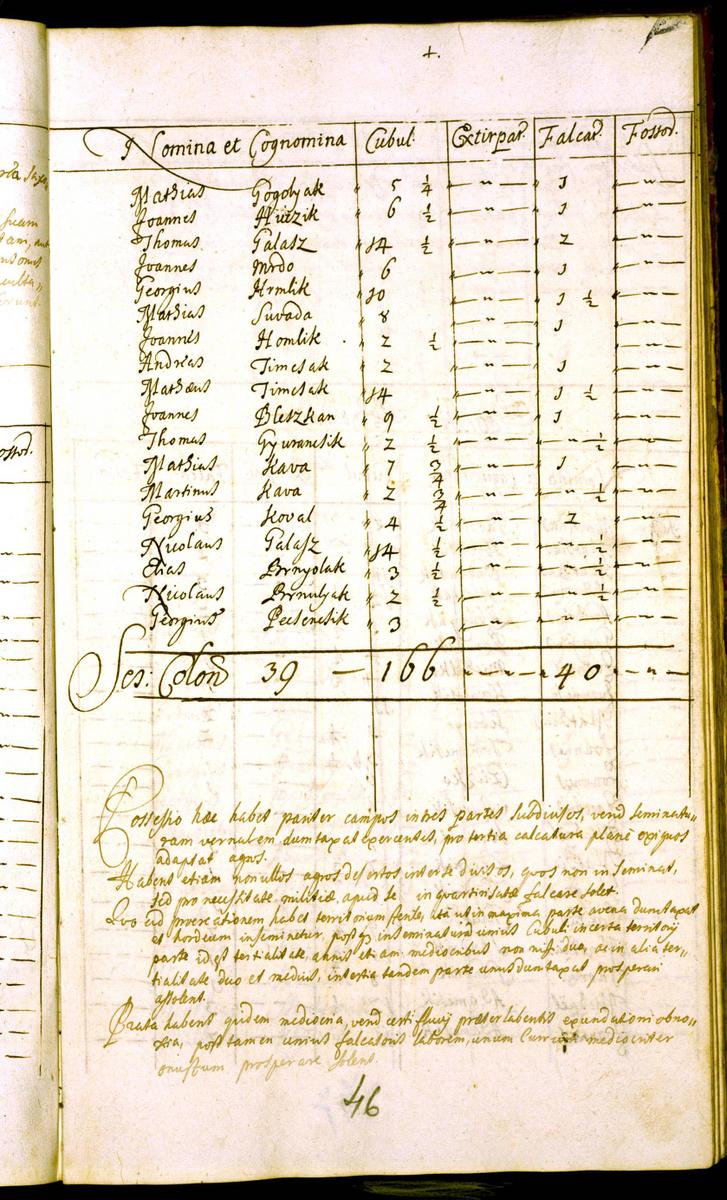 +.
Nomina et Cognomina Cubul. Extirpat. Falcat. Fossor.
Mathias Gogolyak " 5 1/4 " — " — " 1 " — " —
Joannes Hurzik " 6 1/2 " — " — " 1 " — " —
Thomas Galasz " 14 1/2 " — " — " 2 " — " —
Joannes Mrdo " 6 " — " — " 1 " — " —
Georgius Hrmlik " 10 " — " — " 1 1/2 " — " —
Mathias Suvada " 8 " — " — " 1 " — " —
Joannes Homlik " 2 1/2 " — " — " — " — " — " —
Andreas Timcsak " 2 " — " — " 1 " — " —
Mathæus Timcsak " 14 " — " — " 1 1/2 " — " —
Joannes Bletzkan " 9 1/2 " — " — " 1 " — " —
Thomas Gyurancsik " 2 1/2 " — " — " — " 1/2 " — " —
Mathias Kava " 7 3/4 " — " — " 1 " — " —
Martinus Kava " 2 3/4 " — " — " — " 1/2 " — " —
Georgius Koval " 4 1/2 " — " — 2 " — " —
Nicolaus Galasz " 14 1/2 " — " — " — " — 1/2 " — " —
Elias Brnyolak " 3 1/2 " — " — " — " — 1/2 " — " —
Nicolaus Brnulyak " 2 1/2 " — " — " — " — 1/2 " — " —
Georgius Pecsencsik " 3 " — " — " — " — " — " —
Scs: Colon 39 — 166 " — " — " 40 " — " —
Possessio hæc habet pariter campos in tres partes subdivisos, verno seminatu=
ram vernalem dumtaxat exercentes, pro tertia calcatura plane exiguos
adaptat agros.
Habent etiam nonullos agros desertos inter se divisos, quos non inseminat,
sed pro necessitate militiæ, apud se in quartirisatæ falcare solet.
Quo ad procreationem habet territorium sterile, ita ut in maxima parte avena dumtaxat
et hordeum inseminetur, post inseminaturam unius Cubuli in certa territorij
parte id est tertialitate, annis etiam mediocribus non nisi duo, ac in alia ter=
tialitate duo et medius, in tertia tandem parte unus dumtaxat prosperari
assolent.
Prata habent quidem mediocria, vero certi fluvij præterlabentis exundationi obno=
xia, post tamen unius falcatoris laborem, unum Currum mediocriter
onustum prosperare solent.
46